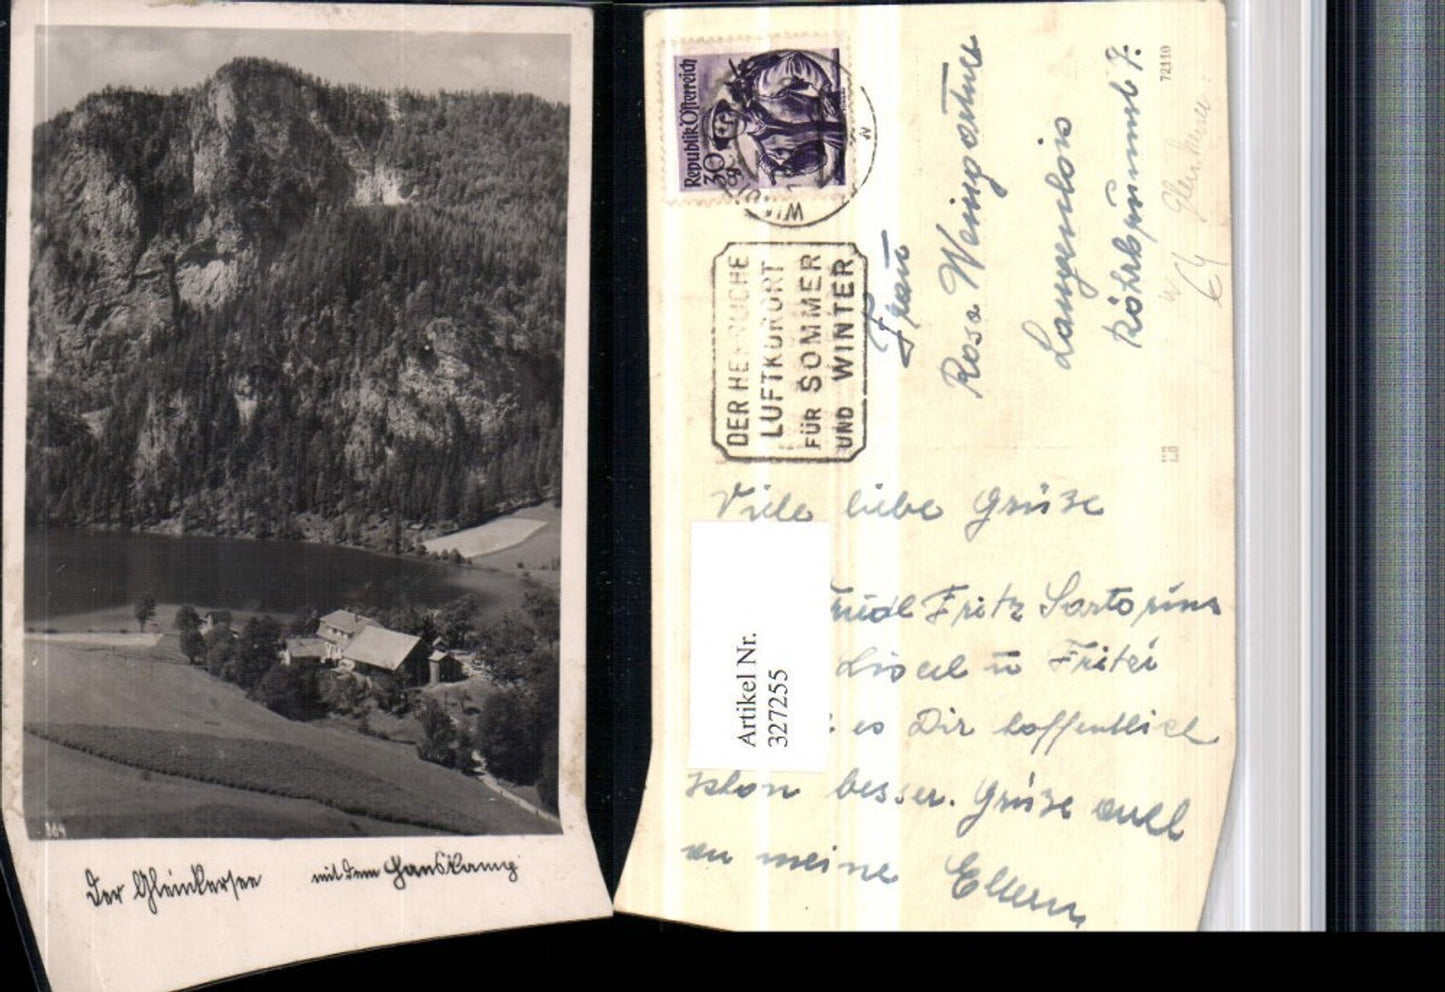 864
Der Gleinkersee mit dem Hanskamp
Republik Österreich
30
DER HERRLICHE
LUFTKURORT
FÜR SOMMER
UND WINTER
Frau
Rosa Weingartner
Langenlois
72110
Viele liebe Grüße
Fritz Sartorius
Liserl u Fritzi
es Dir hoffentlich
schon besser. Grüße auch
an meine Eltern
Artikel Nr.
327255